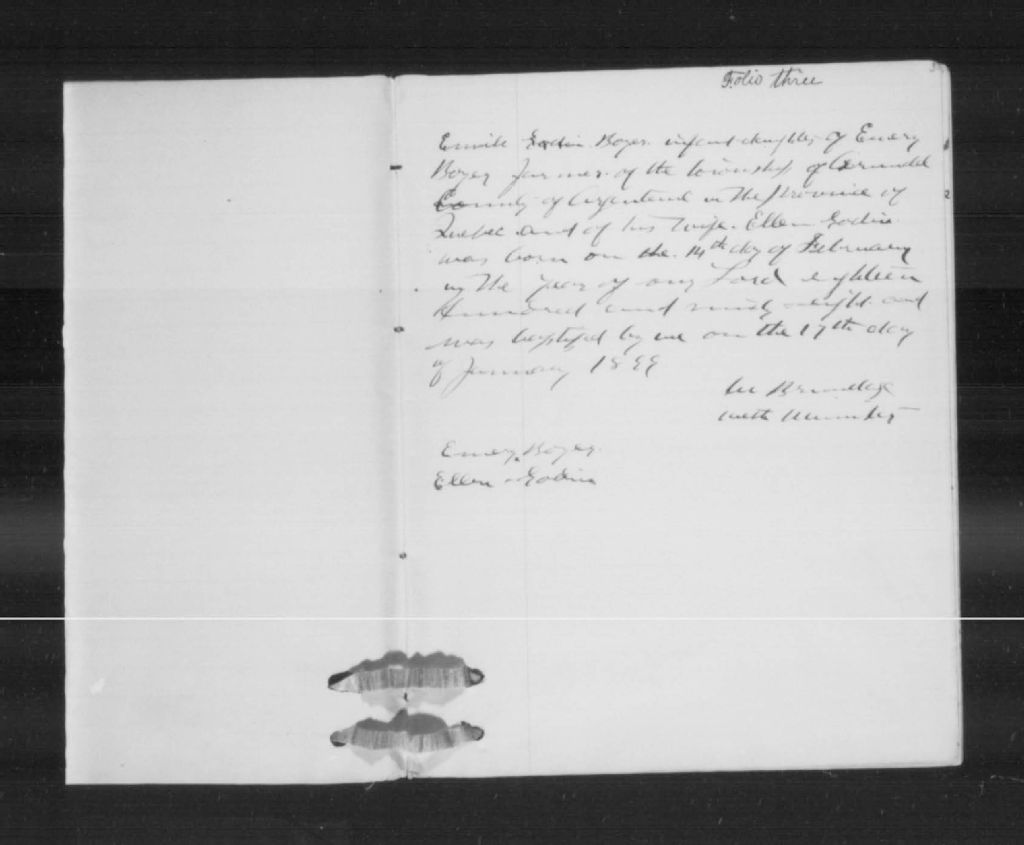 Folio three
Emile Godin Boyer infant daughter of Emery
Boyer farmer of the township of Arundel
County of Argenteuil in the province of
Quebec and of his wife Ellen Godin
was born on the 14th day of February
in the year of our Lord eighteen
Hundred and ninty eight and
was baptized by me on the 17th day
of January 1899
W Brundage
Meth Minister
Emery Boyer
Ellen Godin